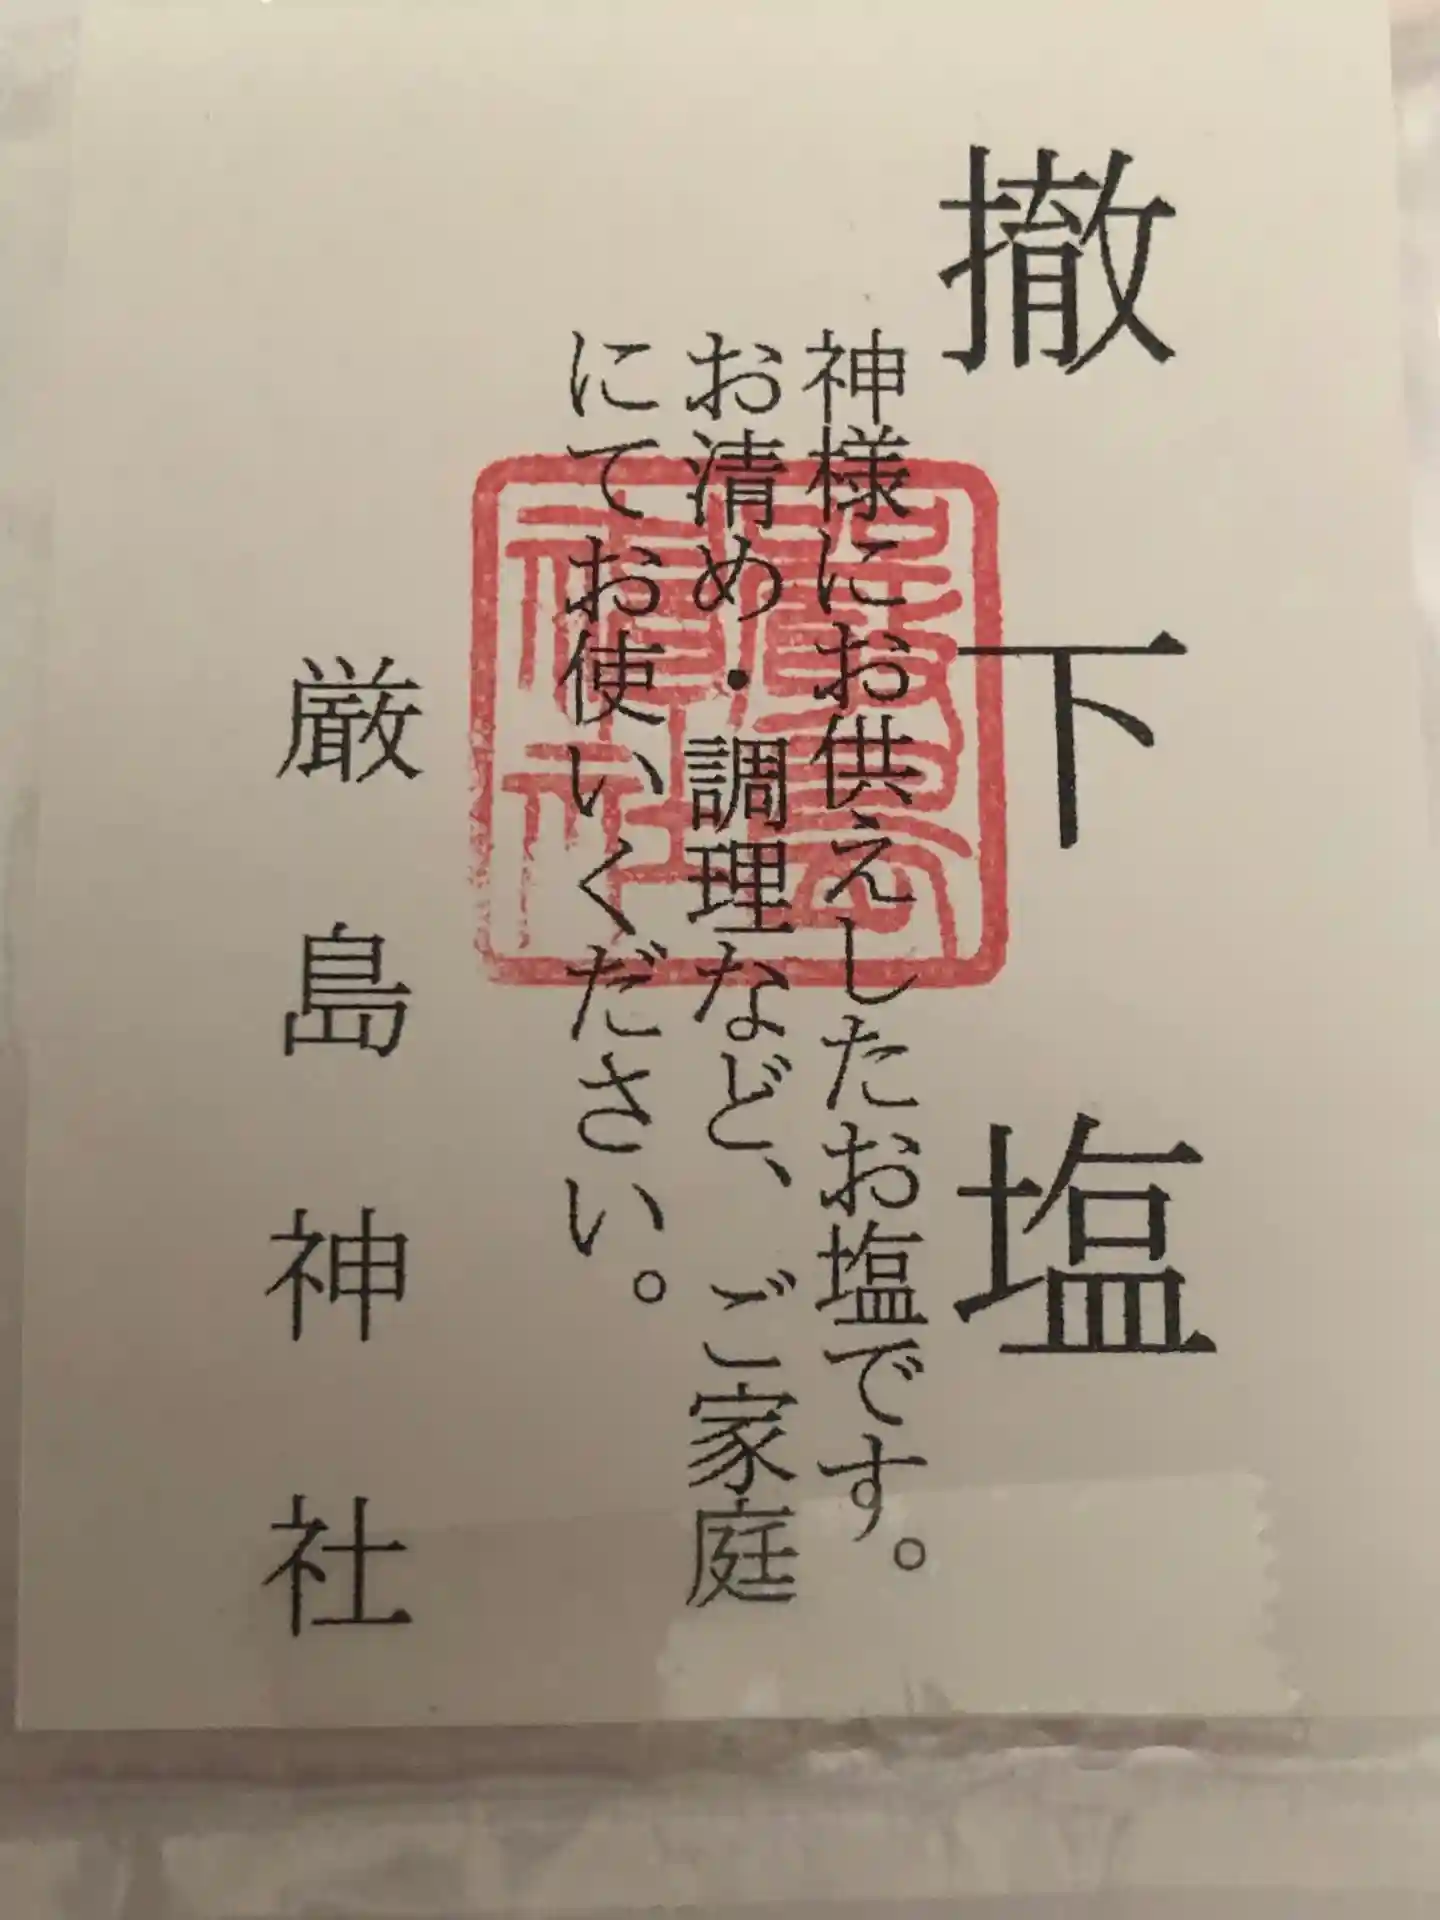 撤下塩
神様にお供えしたお塩です。
お清め・調理など、ご家庭
にてお使いください。
厳島神社